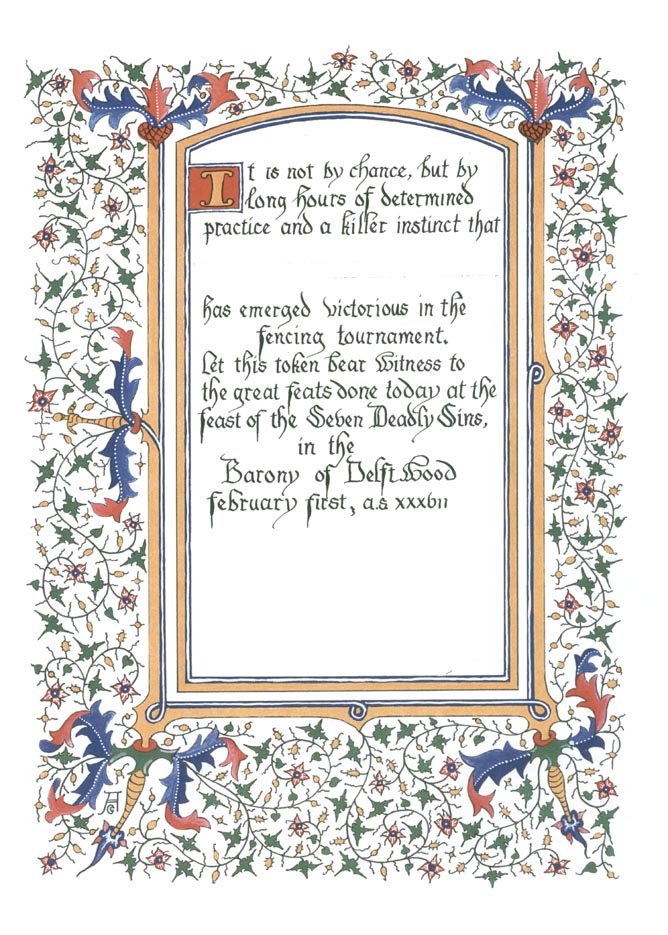 It is not by chance, but by
long hours of determined
practice and a killer instinct that
has emerged victorious in the
fencing tournament.
Let this token bear witness to
the great feats done today at the
feast of the Seven Deadly Sins,
in the
Barony of Delft Wood
february first, a.s xxxvii